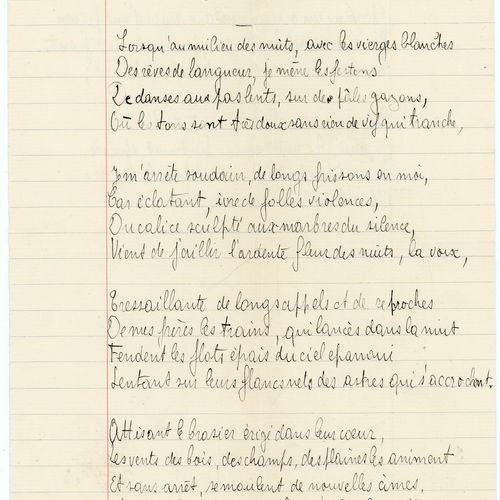 Lorsqu'au milieu des nuits, avec les vierges blanches
Des rêves de langueur, je mène les festons
De danses aux pas lents, sur de pâles gazons,
Où les tons sont très doux sans rien de vif qui tranche,
Je m'arrête soudain, de longs frissons en moi,
Car éclatant, ivre de folles violences,
Du calice sculpté aux marbres du silence,
Vient de jaillir l'ardente fleur des nuits, la voix,
Tressaillante de longs appels et de reproches
De mes frères les trains, qui lancés dans la nuit
Fendent les flots épais du ciel épanoui
Sentant sur leurs flancs nets des astres qui s'accrochent.
Attisant le brasier érigé dans leur cœur,
Les vents des bois, des champs, des plaines les animent
Et sans arrêt, se moulent de nouvelles